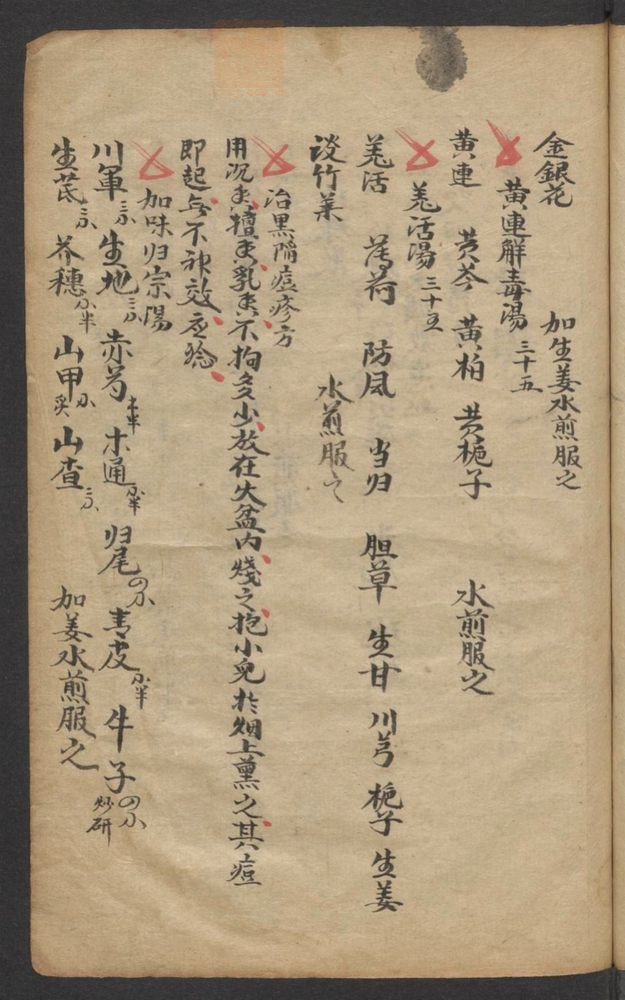 金銀花 加生姜水煎服之
黄連解毒湯 三十五
黄連 黄芩 黄柏 黄梔子 水煎服之
羌活湯 三十五
羌活 薄荷 防风 当归 胆草 生甘 川芎 梔子 生姜
淡竹葉 水煎服之
治黑陷痘疹方
用沉香檀香乳香不拘多少放在火盆内燒之抱小兒於烟上薰之其痘
即起無不神效应验
加味归宗湯
川軍 生地 赤芍 木通 归尾 青皮 牛子 炒研
生芪 芥穗 山甲 山查 加姜水煎服之